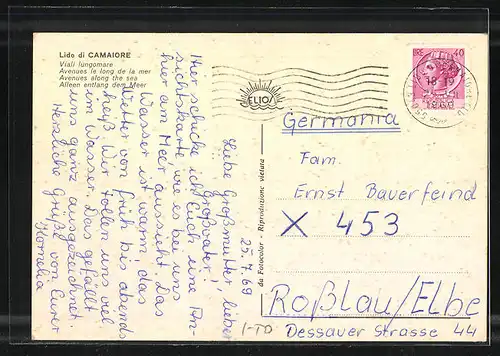 Lido di CAMAIORE
Viali lungomare
Avenues le long de la mer
Avenues along the sea
Alleen entlang dem Meer
ELIOS
da Fotocolor - Riproduzione vietata
40
25.7.69
Liebe Großmutter, lieber
Großvater!
Hier schicke ich Euch eine An-
sichtskarte wie es bei uns
hier am Meer aussieht. Das
Wasser ist warm, das
Wetter von früh bis abends
heiß. Wir tollen uns viel
im Wasser. Das gefällt
uns ganz ausgezeichnet.
Herzliche Grüße von Eurer
Kornelia
Germania
Fam.
Ernst Bauerfeind
X 453
Roßlau/Elbe
Dessauer Strasse 44
I-TD